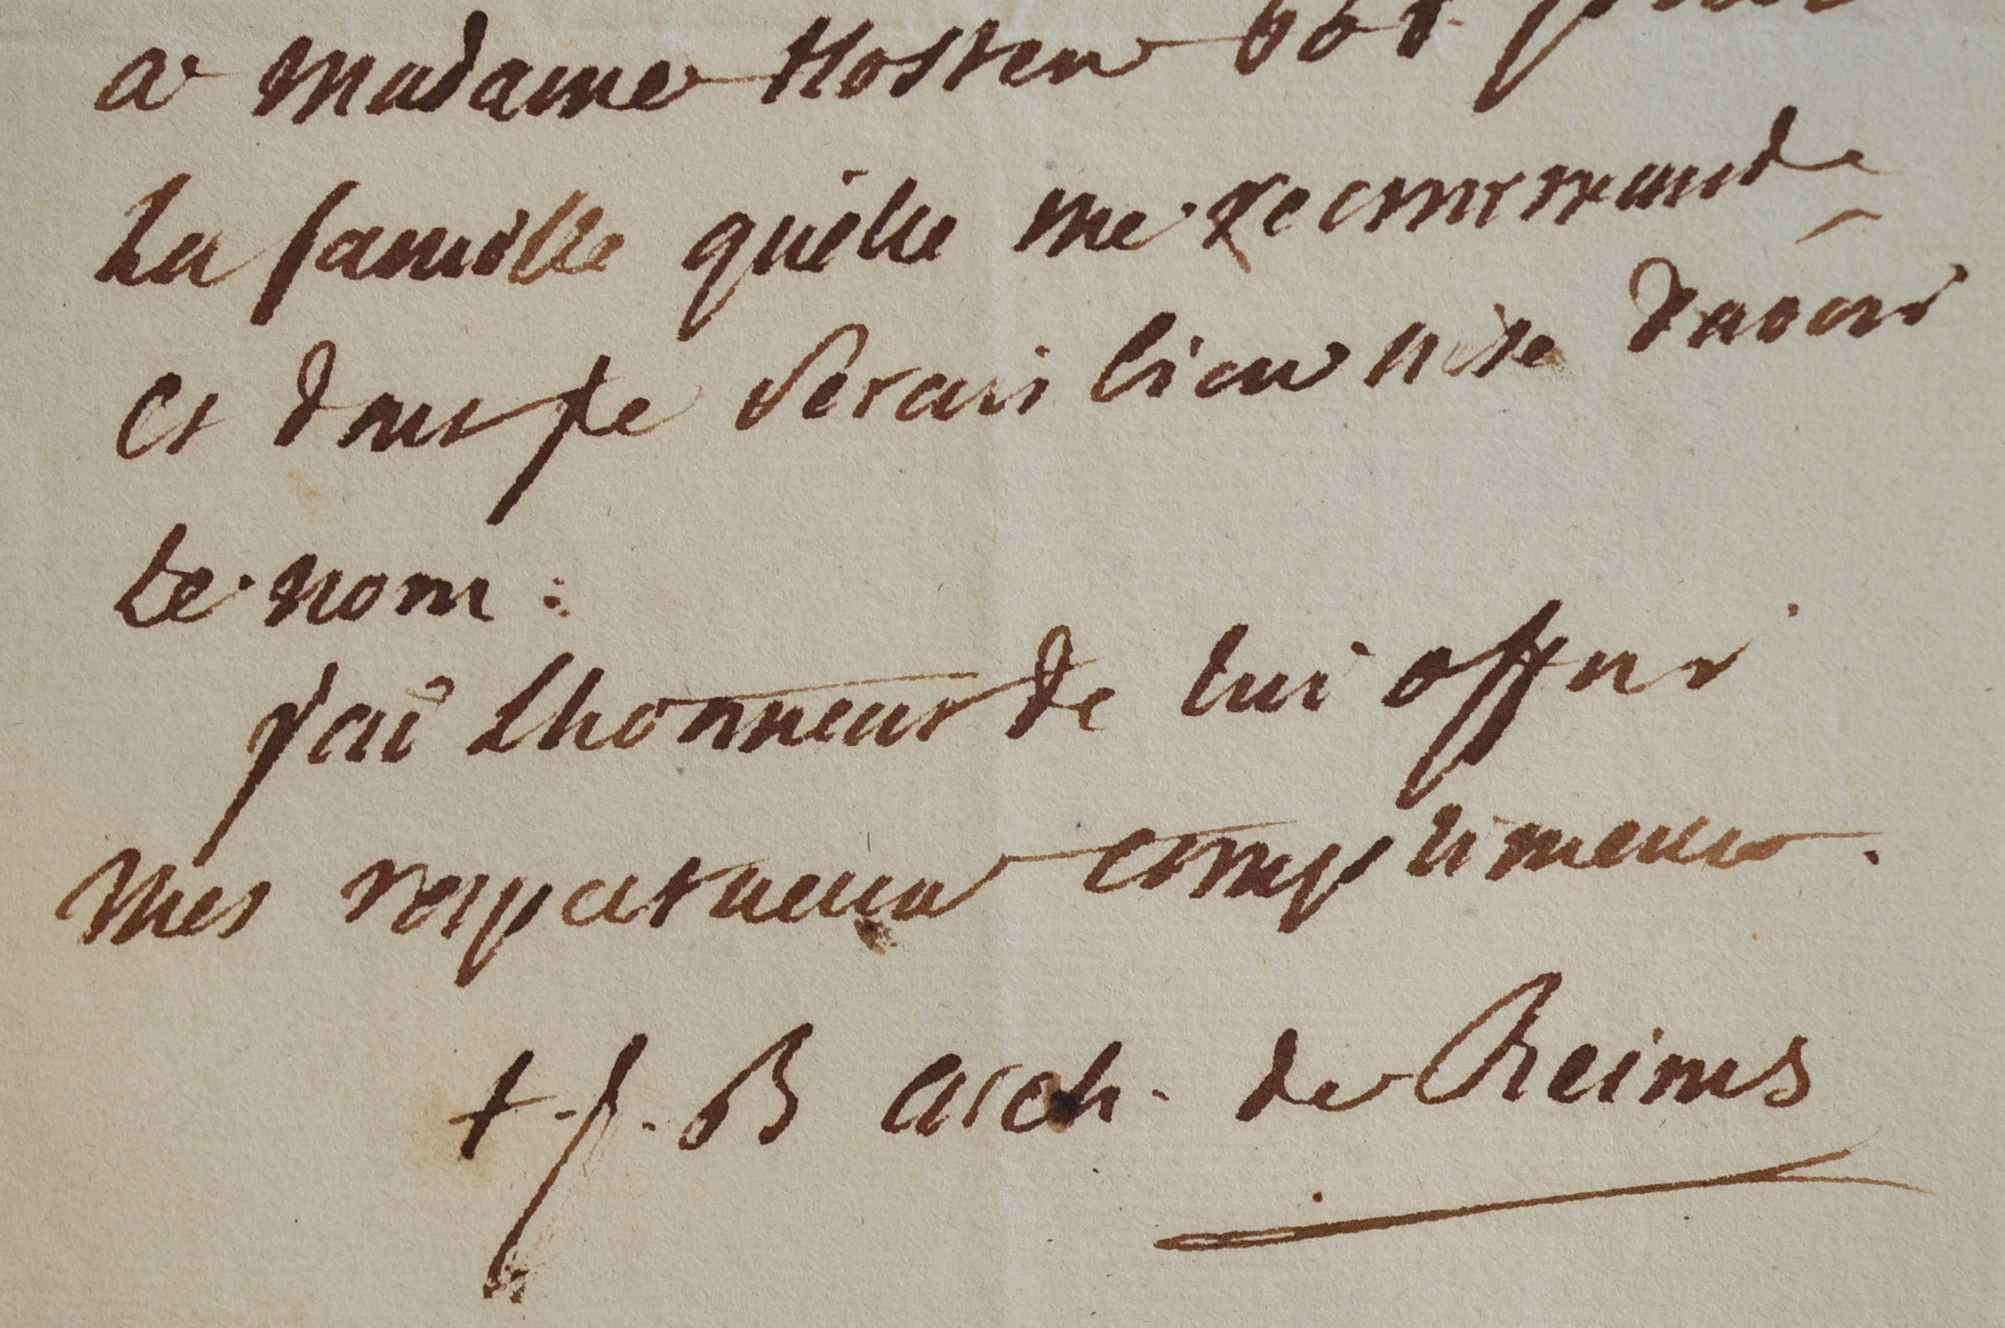 a madame Hosten 66 f. pour
la famille qu'elle me recommande
et dont je serais bien aise d'avoir
le nom :
j'ai L'honneur de lui offrir
mes respectueux complimens.
+ j. B arch. de Reims